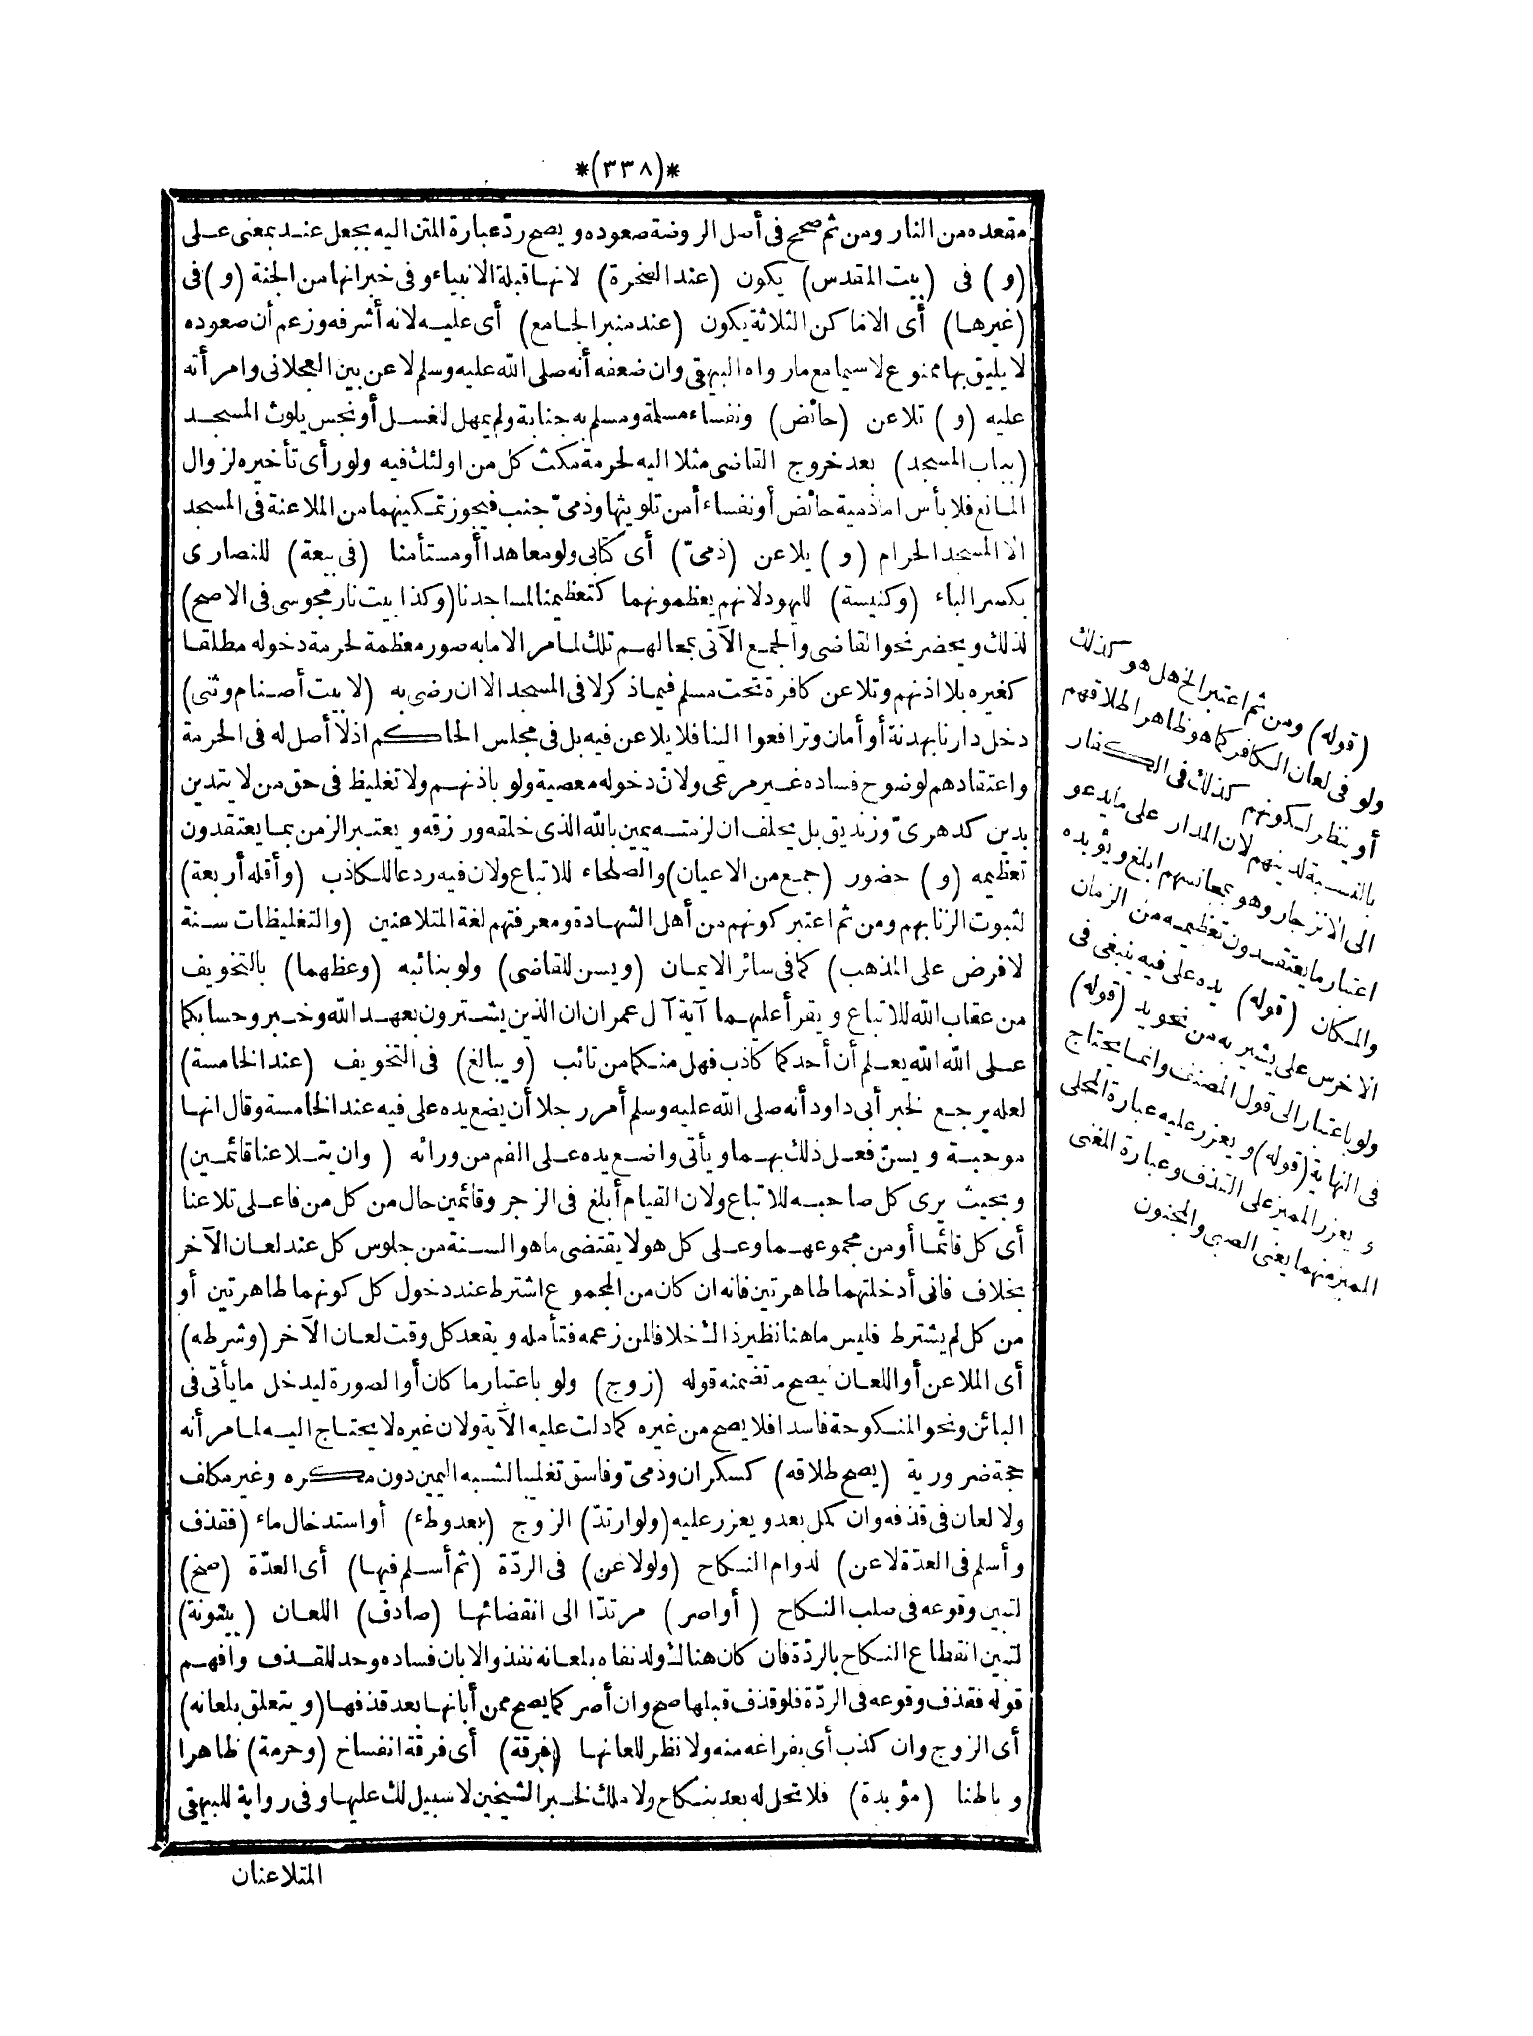 *(٣٣٨)*
مقعده من النار ومن ثم صحح فى أصل الروضة صعوده ويصح ردّ عبارة المتن اليه بجعل عند بمعنى على
(و) فى (بيت المقدس) يكون (عند الصخرة) لانها قبلة الانبياء وفى خبر انها من الجنة (و) فى
(غيرها) أى الاماكن الثلاثة يكون (عند منبر الجامع) أى عليه لانه أشرفه وزعم أن صعوده
لا يليق بها ممنوع لاسيما مع ما رواه البيهقى وان ضعفه أنه صلى الله عليه وسلم لاعن بين العجلانى وامرأته
عليه (و) تلاعن (حائض) ونفساء مسلمة ومسلم به جنابة ولم يمهل لغسل أو نجس يلوث المسجد
(بباب المسجد) بعد خروج القاضى مثلا اليه لحرمة مكث كل من اولئك فيه ولو رأى تأخيره لزوال
المانع فلا بأس اما ذمية حائض أو نفساء أمن تلويثها وذمىّ جنب فيجوز تمكينهما من الملاعنة فى المسجد
الا المسجد الحرام (و) يلاعن (ذمىّ) أى كتابى ولو معاهدا أو مستأمنا (فى بيعة) للنصارى
بكسر الباء (وكنيسة) لليهود لانهم يعظمونهما كتعظيمنا لمساجدنا (وكذا بيت نار مجوسى فى الاصح)
لذلك ويحضر نحو القاضى والجمع الآتى بمحالهم تلك لما مر الا ما به صور معظمة لحرمة دخوله مطلقا
كغيره بلا اذنهم وتلاعن كافرة تحت مسلم فيما ذكر لا فى المسجد الا ان رضى به (لا بيت أصنام وثنى)
دخل دارنا بهدنة أو أمان وترافعوا الينا فلا يلاعن فيه بل فى مجلس الحاكم اذ لا أصل له فى الحرمة
واعتقادهم لوضوح فساده غير مرعى ولانّ دخوله معصية ولو باذنهم ولا تغليظ فى حق من لا يتدين
بدين كدهرىّ وزنديق بل يحلف ان لزمته يمين بالله الذى خلقه ورزقه ويعتبر الزمن بما يعتقدون
تعظيمه (و) حضور (جمع من الاعيان) والصلحاء للاتباع ولان فيه ردعا للكاذب (وأقله أربعة)
لثبوت الزنا بهم ومن ثم اعتبر كونهم من أهل الشهادة ومعرفتهم لغة المتلاعنين (والتغليظات سنة
لا فرض على المذهب) كما فى سائر الايمان (ويسن للقاضى) ولو بنائبه (وعظهما) بالتخويف
من عقاب الله للاتباع ويقرأ عليهما آية آل عمران ان الذين يشترون بعهد الله وخبر وحسابكما
على الله الله يعلم أن أحدكما كاذب فهل منكما من تائب (ويبالغ) فى التخويف (عند الخامسة)
لعله يرجع لخبر أبى داود أنه صلى الله عليه وسلم أمر رجلا أن يضع يده على فيه عند الخامسة وقال انها
موجبة ويسنّ فعل ذلك بهما ويأتى واضع يده على الفم من ورائه (وان يتلاعنا قائمين)
وبحيث يرى كل صاحبه للاتباع ولان القيام أبلغ فى الزجر وقائمين حال من كل من فاعلى تلاعنا
أى كل قائما أو من مجموعهما وعلى كل هو لا يقتضى ما هو السنة من جلوس كل عند لعان الآخر
بخلاف فانى أدخلتهما طاهرتين فانه ان كان من المجموع اشترط عند دخول كل كونهما طاهرتين أو
من كل لم يشترط فليس ما هنا نظير ذاك خلافا لمن زعمه فتأمله ويقعد كل وقت لعان الآخر (وشرطه)
أى الملاعن أو اللعان ليصح ما تضمنه قوله (زوج) ولو باعتبار ما كان أو الصورة ليدخل ما يأتى فى
البائن ونحو المنكوحة فاسدا فلا يصح من غيره كما دلت عليه الآية ولان غيره لا يحتاج اليه لما مر أنه
حجة ضرورية (يصح طلاقه) كسكران وذمىّ وفاسق تغليبا لشبه اليمين دون مكره وغير مكلف
ولا لعان فى قذفه وان كمل بعد ويعزر عليه (ولو ارتدّ) الزوج (بعد وطء) أو استدخال ماء (فقذف
وأسلم فى العدّة لاعن) لدوام النكاح (ولو لاعن) فى الردّة (ثم أسلم فيها) أى العدّة (صح)
لتبين وقوعه فى صلب النكاح (أو اصر) مرتدّا الى انقضائها (صادف) اللعان (بينونة)
لتبين انقطاع النكاح بالردّة فان كان هناك ولد نفاه بلعانه نفذ والا بان فساده وحد للقذف وافهم
قوله فقذف وقوعه فى الردّة فلو قذف قبلها صح وان أصر كما يصح ممن أبانها بعد قذفها (ويتعلق بلعانه)
أى الزوج وان كذب أى بفراغه منه ولا نظر للعانها (فرقة) أى فرقة انفساخ (وحرمة) ظاهرا
وباطنا (مؤبدة) فلا تحل له بعد بنكاح ولا ملك لخبر الشيخين لا سبيل لك عليها وفى رواية للبيهقى
المتلاعنان
(قوله) ومن ثم اعتبر الخ هل هو كذلك
ولو فى لعان الكافر كما هو ظاهر اطلاقهم
أو ينظر لكونهم كذلك فى الكفار
بالنسبة لدينهم لان المدار على ما يدعو
الى الانزجار وهو بمجانسهم ابلغ ويؤيده
اعتبار ما يعتقدون تعظيمه من الزمان
والمكان (قوله) يده على فيه ينبغى فى
الاخرس على يشير به من نحو يد (قوله)
ولو باعتبار الى قول المصنف وانما يحتاج
فى النهاية (قوله) ويعزر عليه عبارة المحلى
ويعزر المميز على القذف وعبارة المغنى
المميز منهما يعنى الصبى والمجنون